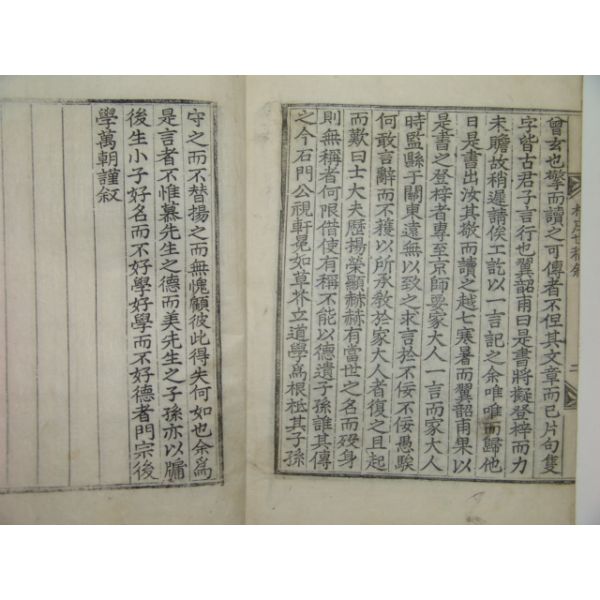 曾玄也擎而讀之可傳者不但其文章而已片句隻
字皆古君子言行也翼韶甫曰是書將擬登梓而力
未贍故稍遲請俟工訖以一言記之余唯唯而歸他
日是書出汝其敬而讀之越七寒暑而翼韶甫果以
是書之登梓者專至京師要家大人一言而家大人
時監縣于關東遠無以致之求言於不佞不佞愚騃
何敢言辭而不獲以所承敎於家大人者復之且起
而歎曰士大夫歷揚榮顯赫赫有當世之名而殁身
則無稱者何限借使有稱不能以德遺子孫誰其傳
之今石門公視軒冕如草芥立道學爲根柢其子孫
守之而不替揚之而無愧顧彼此得失何如也余爲
是言者不惟慕先生之德而美先生之子孫亦以牖
後生小子好名而不好學好學而不好德者門宗後
學萬朝謹叙